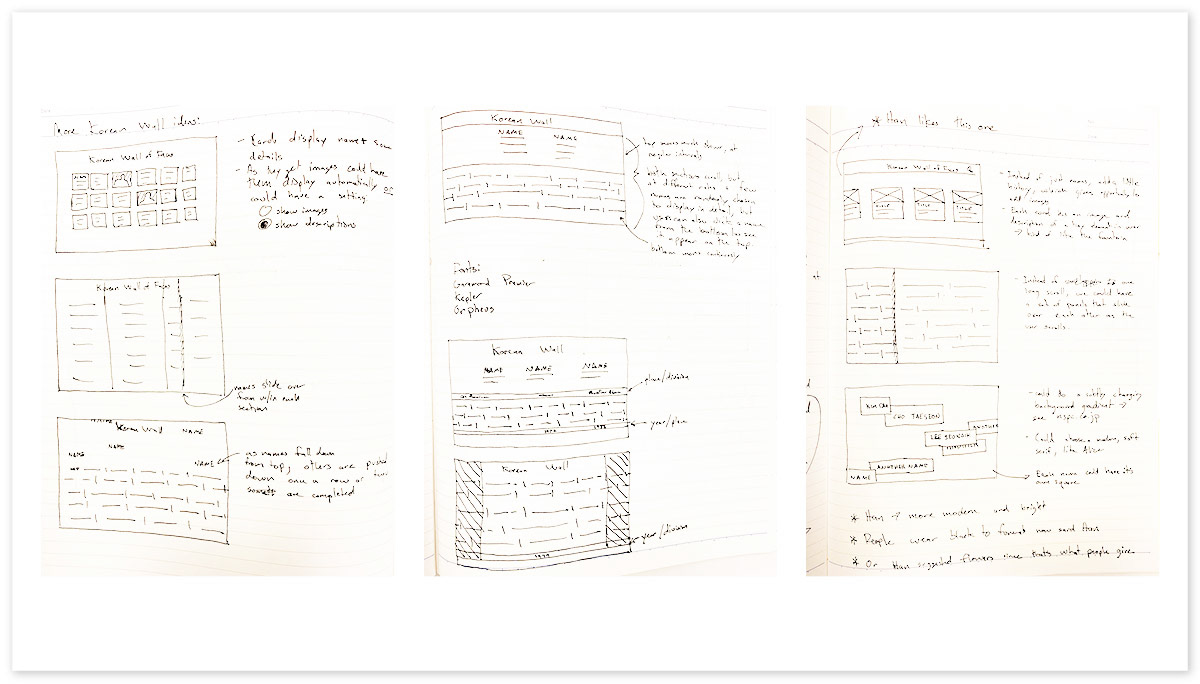 More Korean Wall ideas:
Korean Wall of Faces
- Cards display name + some
details
- As they get images could have
them display automatically or
could have a setting
show images
show descriptions
Korean Wall of Faces
names slide over
from w/in each
section
Korean Wall
NAME
NAME
NAME
NAME
as names fall down
from top, others are pushed
down once a row or
are completed
Korean Wall
NAME
NAME
at
regular intervals
at different rates a few
names are randomly chosen
to display in detail, but
users can also click a name
from the bottom to see
it appear on the top.
bottom moves continuously
Fonts:
Garamond Premier
Kepler
Orpheus
Korean Wall
NAME
NAME
NAME
place/division
year/place
Korean Wall
year/division
* Han likes this one
Korean Wall of Faces
TITLE
TITLE
TITLE
- Instead of just names, adds little
history, interests gives opportunity to
add images
- Each card has an image and
description
→ kind of like the
- Instead of one
long scroll, we could have
a set of panels that slide
over each other as the
user scrolls.
CHO TAESEON
LEE SEONGIK
ANOTHER
ANOTHER NAME
NAME
- could do a subtly changing
background gradient →
see
- Could choose a modern, soft
serif, like Alice
- Each name could have its
own square
* Han → more modern and bright
* People wear black to funeral now said Han
* Or Han suggested flowers since that's what people give